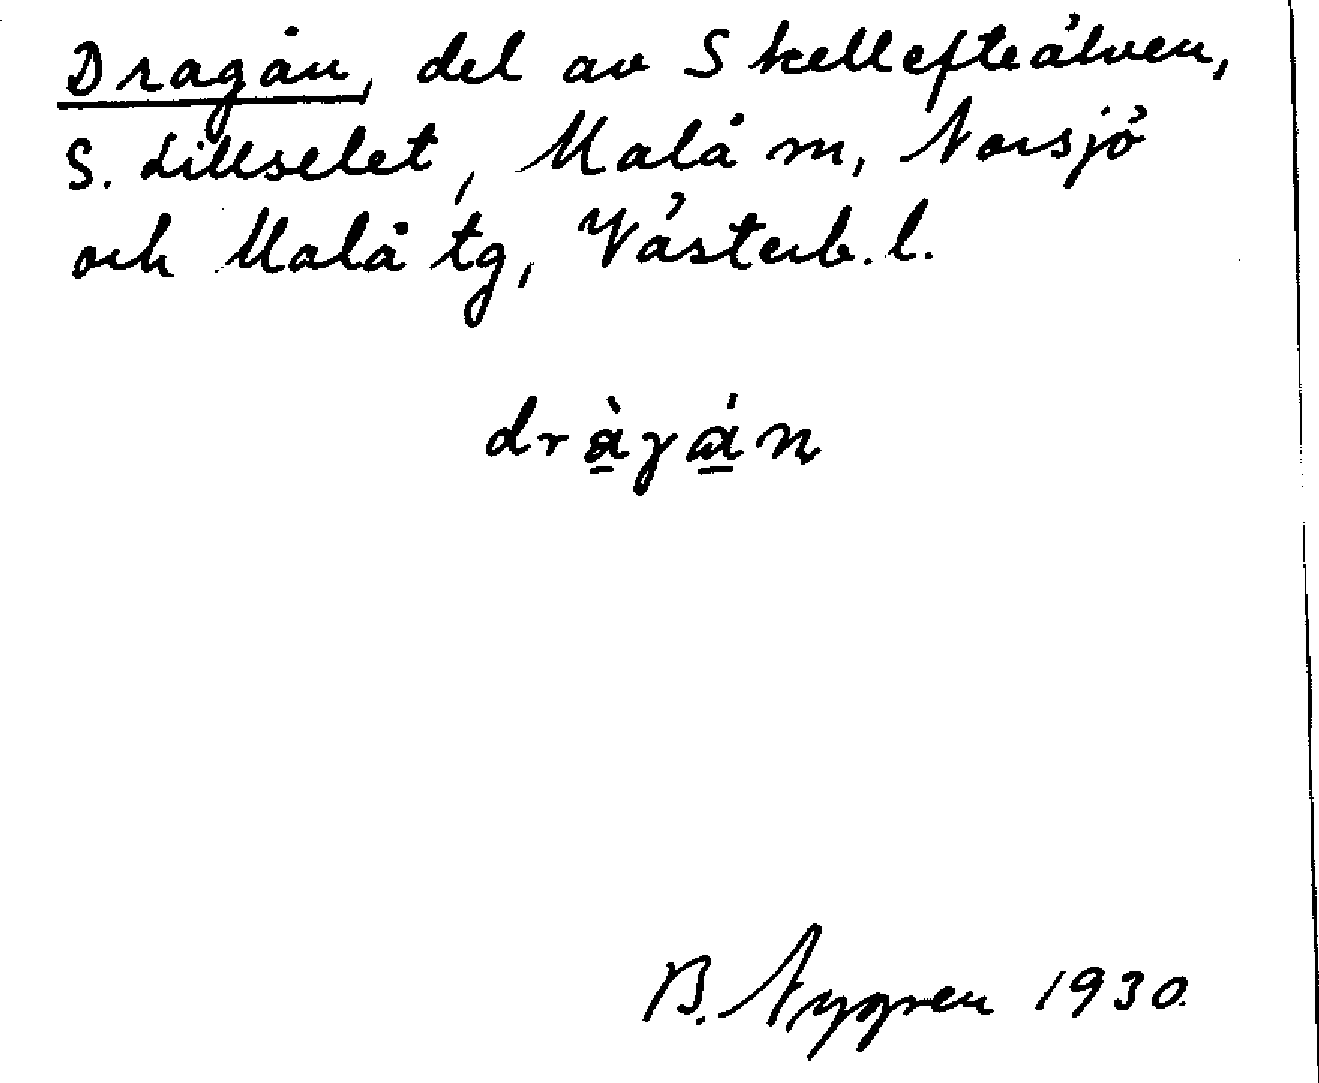 Dragån, del av Skellefteälven,
S. Lillselet, Malå m, Norsjö
och Malå tg, Västerb. l.
dràgán
B. Nygren 1930.